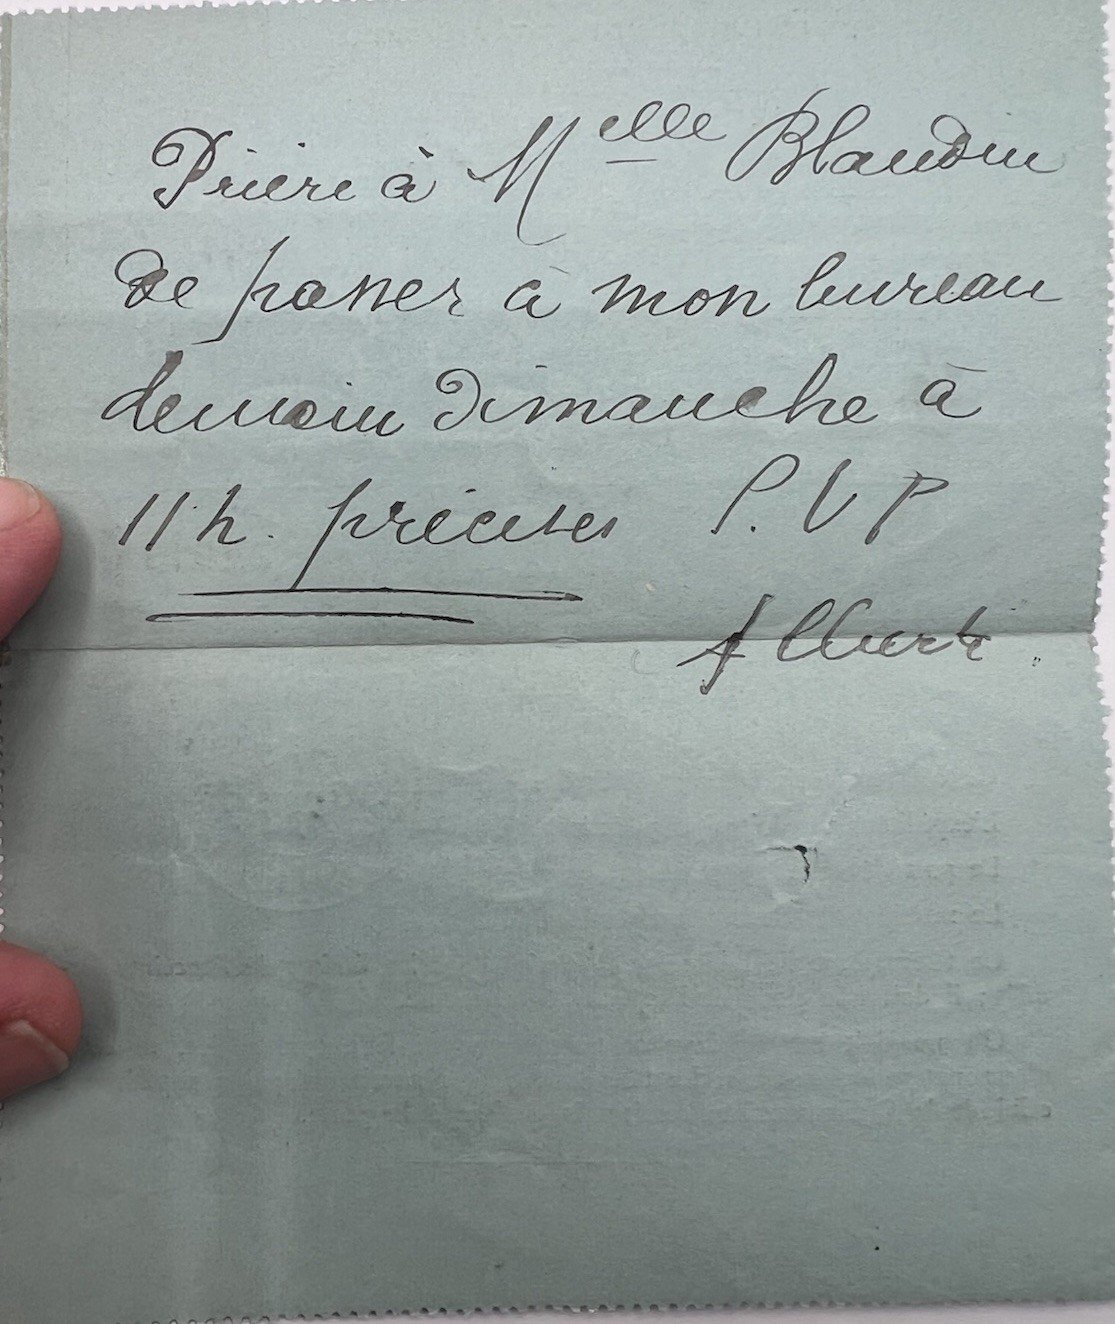 Prière à Melle Blandin
de passer à mon bureau
demain dimanche à
11 h. précises P. V P
Albert.